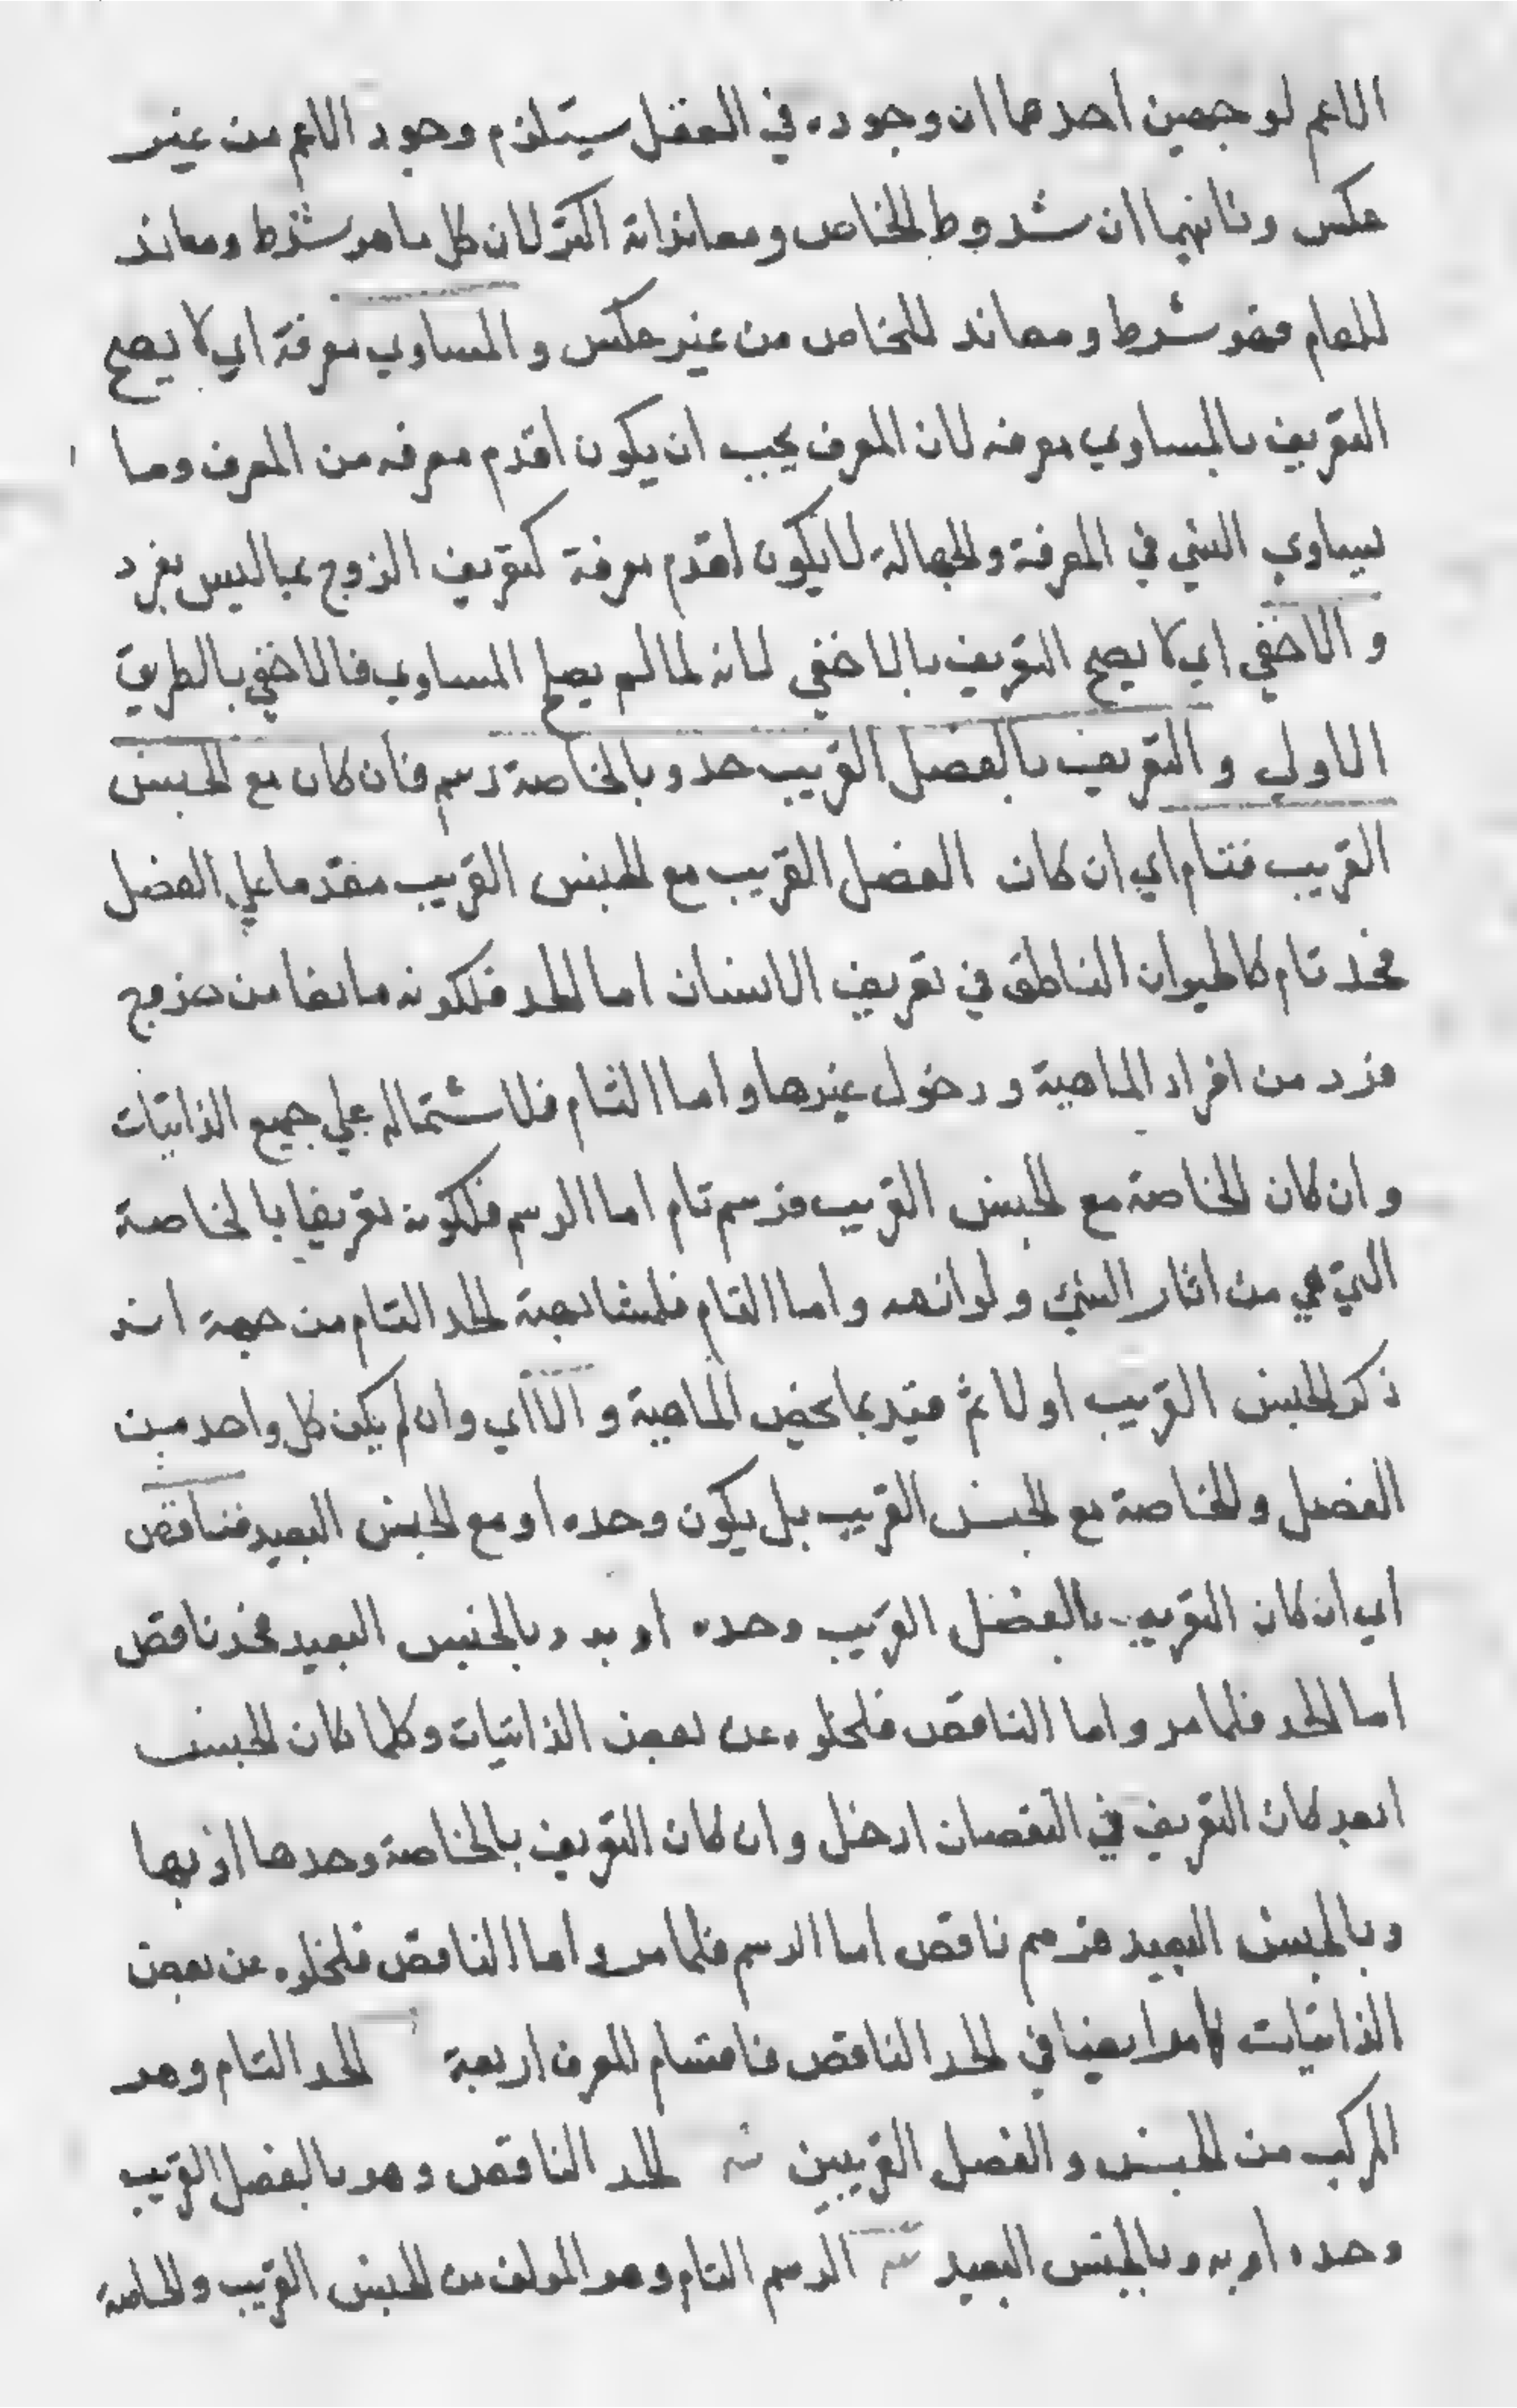 الاعم لوجهين احدهما ان وجوده في العقل يستلزم وجود الاعم من غير
عكس وثانيهما ان شروط الخاص ومعانداته اكثر لان كل ما هو شرط ومعاند
للعام فهو شرط ومعاند للخاص من غير عكس والمساوي معرفة اي لا يصح
التعريف بالمساوي معرفه لان المعرف يجب ان يكون اقدم معرفه من المعرف وما
يساوي الشي في المعرفة والجهالة لا يكون اقدم معرفة كتعريف الزوج بما ليس بفرد
والاخفي اي لا يصح التعريف بالاخفي لانه لما لم يصلح المساوي فالاخفي بالطريق
الاولي والتعريف بالفصل القريب حد وبالخاصة رسم فان كان مع الجنس
القريب فتام اي ان كان الفصل القريب مع الجنس القريب مقدما علي الفصل
فحد تام كالحيوان الناطق في تعريف الانسان اما الحد فلكونه مانعا من خروج
فرد من افراد الماهية ودخول غيرها واما التام فلاشتماله علي جميع الذاتيات
وان كان الخاصة مع الجنس القريب فرسم تام اما الرسم فلكونه تعريفا بالخاصة
التي هي من اثار الشئ ولوازمه واما التام فلمشابهية الحد التام من جهة انه
ذكر الجنس القريب اولا ثم قيد بما يخص الماهية والا اي وان لم يكن كل واحد من
الفصل والخاصة مع الجنس القريب بل يكون وحده او مع الجنس البعيد فناقص
اي ان كان التعريف بالفصل القريب وحده او به وبالجنس البعيد فحد ناقص
اما الحد فلما مر واما الناقص فلخلوه عن بعض الذاتيات وكلما كان الجنس
ابعد كان التعريف في النقصان ادخل وان كان التعريف بالخاصة وحدها او بها
وبالجنس البعيد فرسم ناقص اما الرسم فلما مر واما الناقص فلخلوه عن بعض
الذاتيات كما مر ايضا في الحد الناقص فاقسام المعرف اربعة الحد التام وهو
المركب من الجنس والفصل القريبين الحد الناقص وهو بالفصل القريب
وحده او به وبالجنس البعيد الرسم التام وهو المولف من الجنس القريب والخاصة